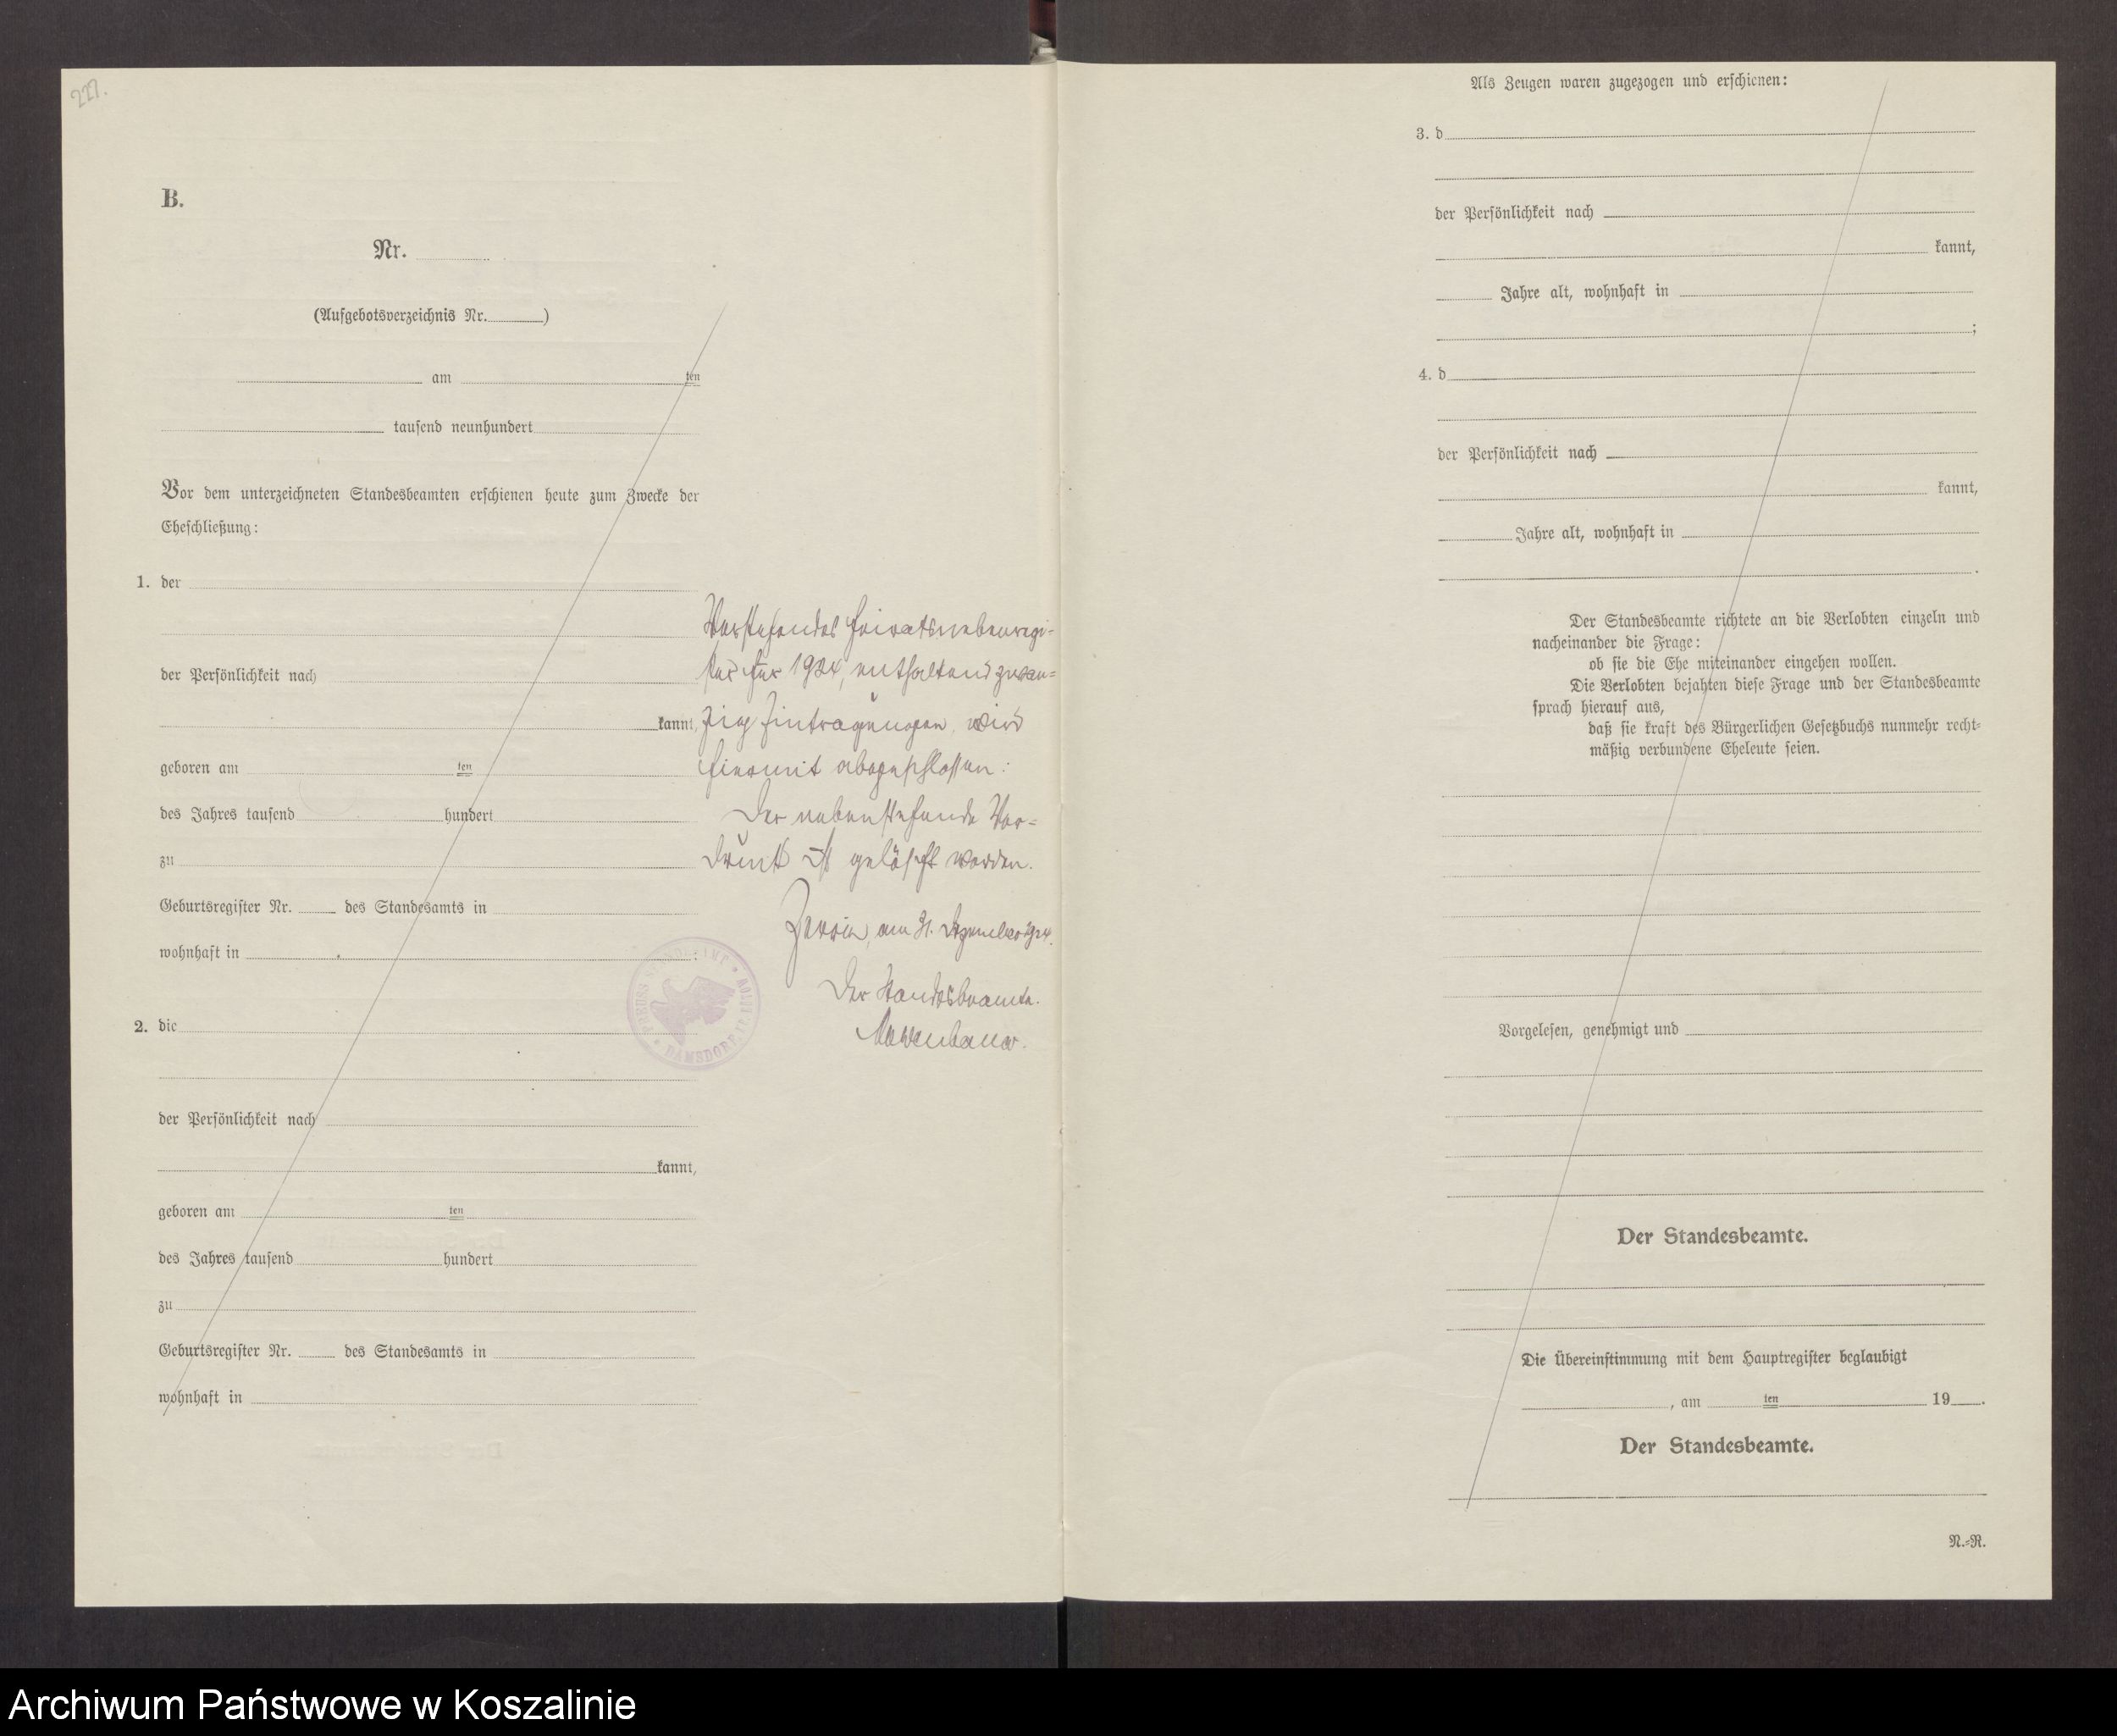 227.
B.
Nr.
(Aufgebotsverzeichnis Nr. )
am ten
tausend neunhundert
Vor dem unterzeichneten Standesbeamten erschienen heute zum Zwecke der
Eheschließung:
1. der
der Persönlichkeit nach
kannt,
geboren am ten
des Jahres tausend hundert
zu
Geburtsregister Nr. des Standesamts in
wohnhaft in ;
2. die
der Persönlichkeit nach
kannt,
geboren am ten
des Jahres tausend hundert
zu
Geburtsregister Nr. des Standesamts in
wohnhaft in
Vorstehendes Heiratsnebenregi-
ster für 1924, enthaltend zwan-
zig Eintragungen, wird
hiermit abgeschlossen:
Der nebenstehende Vor-
druck ist gelöscht worden.
am 31. Dezember 1924.
Der Standesbeamte.
PREUSS. STANDESAMT
DAMSDORF
Als Zeugen waren zugezogen und erschienen:
3. d
der Persönlichkeit nach
kannt,
Jahre alt, wohnhaft in
;
4. d
der Persönlichkeit nach
kannt,
Jahre alt, wohnhaft in
.
Der Standesbeamte richtete an die Verlobten einzeln und
nacheinander die Frage:
ob sie die Ehe miteinander eingehen wollen.
Die Verlobten bejahten diese Frage und der Standesbeamte
sprach hierauf aus,
daß sie kraft des Bürgerlichen Gesetzbuchs nunmehr recht-
mäßig verbundene Eheleute seien.
Vorgelesen, genehmigt und
Der Standesbeamte.
Die Übereinstimmung mit dem Hauptregister beglaubigt
, am ten 19 .
Der Standesbeamte.
N.-R.
Archiwum Państwowe w Koszalinie